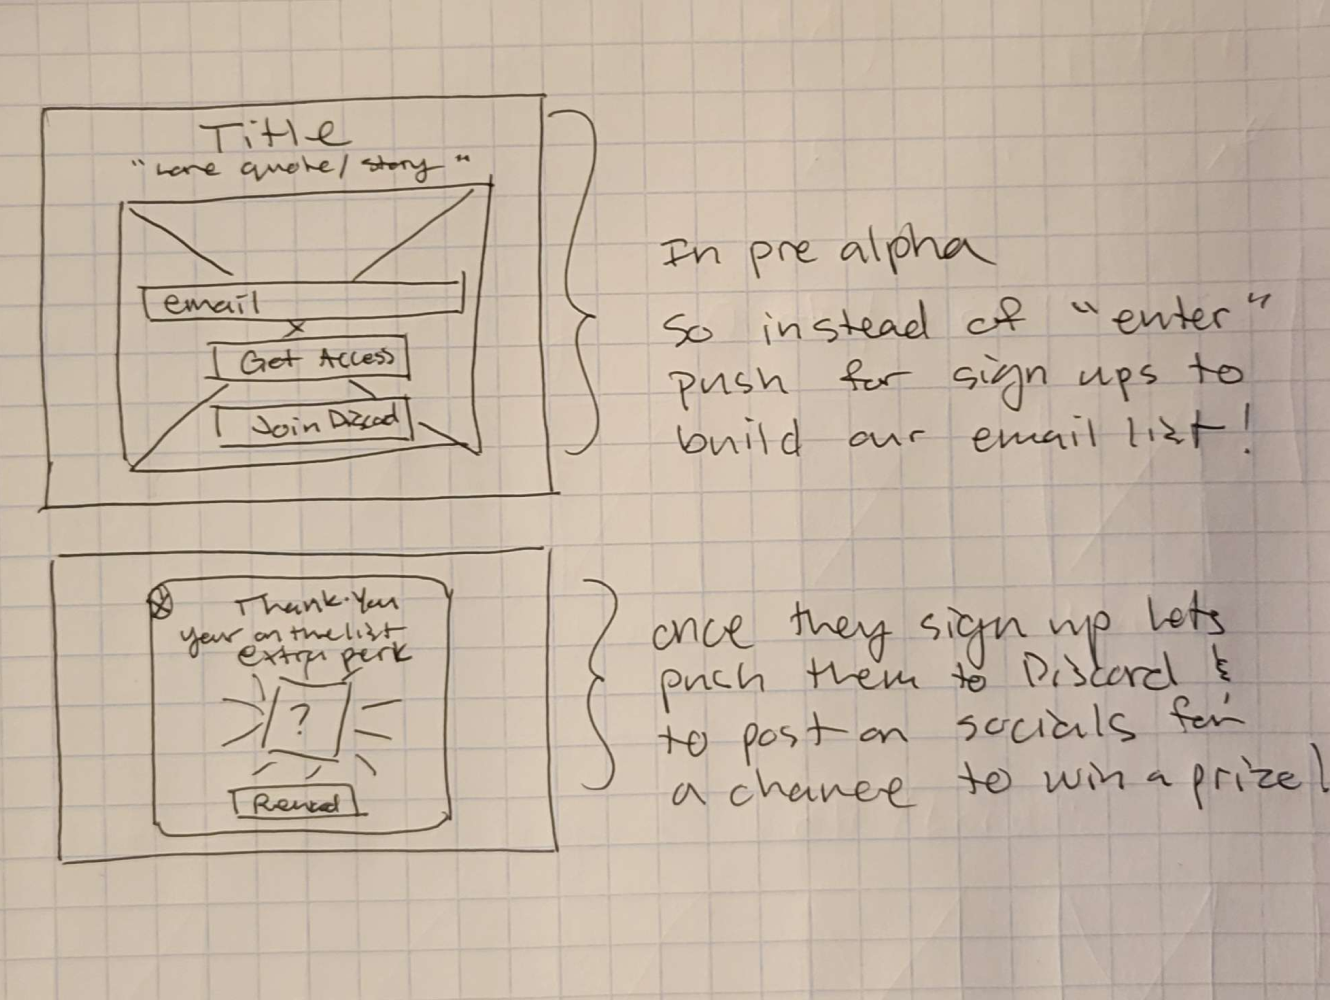 Title
"Lore quote/story"
email
Get Access
Join Discod
In pre alpha
so instead of "enter"
push for sign ups to
build our email list!
Thank-You
your on the list
extra perk
?
once they sign up lets
push them to Discord &
to post on socials for
a chance to win a prize!